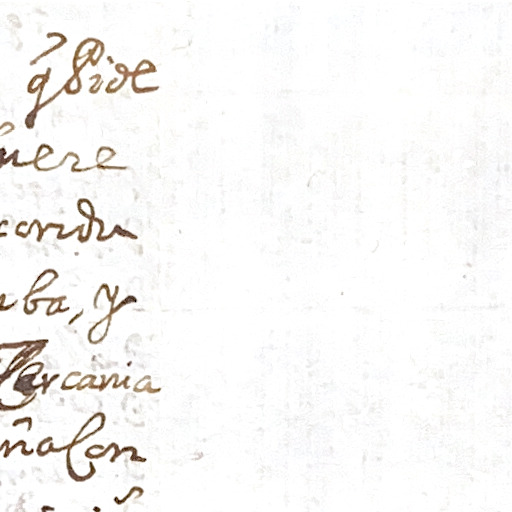 q̃ Pide
uere
condu
ba, y
Cercania
ña Con